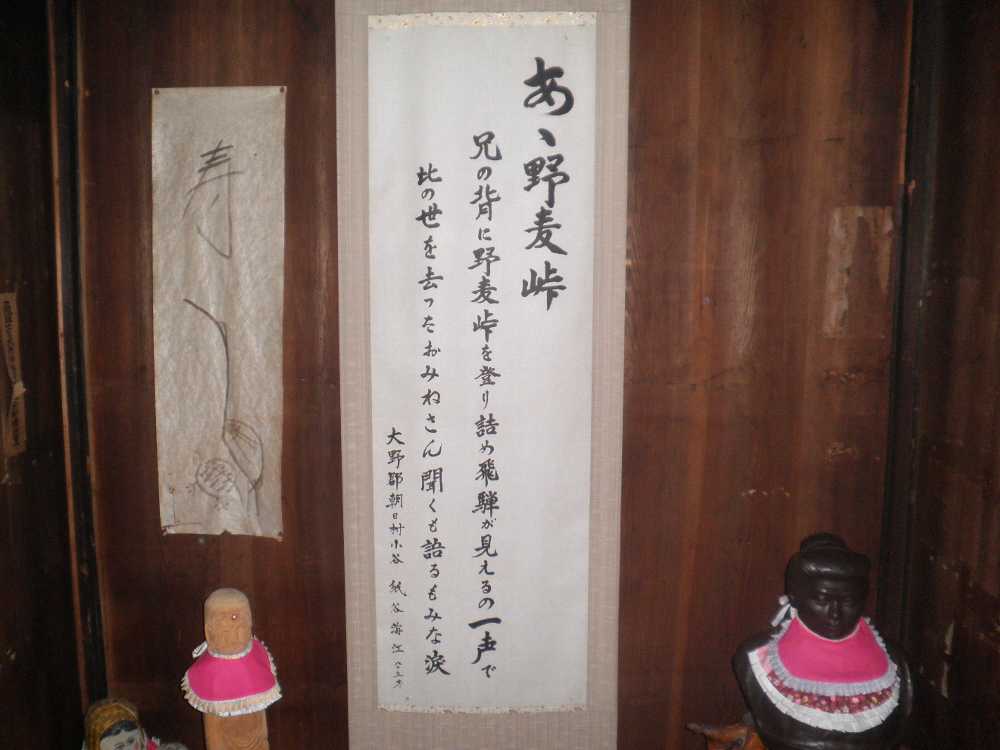 あゝ野麦峠
兄の背に野麦峠を登り詰め飛騨が見えるの一声で
此の世を去ったおみねさん聞くも語るもみな涙
大野郡朝日村小谷 紙谷
寿